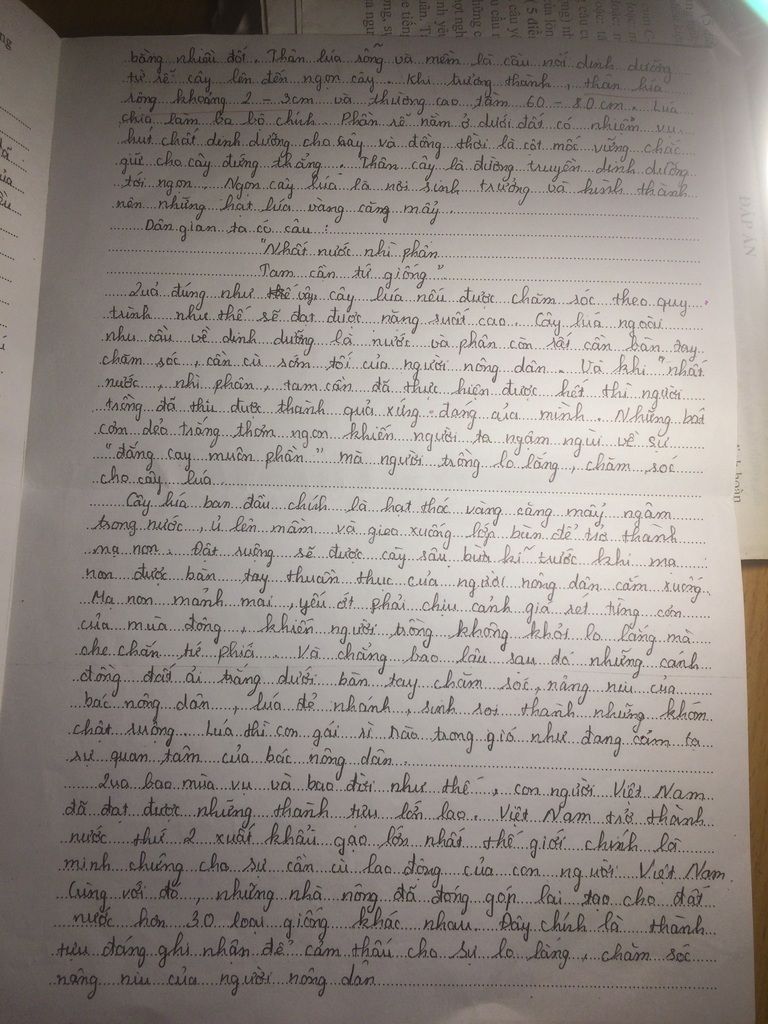 bằng nhiều đốt. Thân lúa rỗng và mềm là cầu nối dinh dưỡng
từ rễ cây lên đến ngọn cây. Khi trưởng thành, thân lúa
rộng khoảng 2 - 3cm và thường cao tầm 60 - 80cm. Lúa
chia làm ba bộ chính. Phần rễ nằm ở dưới đất có nhiệm vụ
hút chất dinh dưỡng cho cây và đồng thời là cột mốc vững chắc
giữ cho cây đứng thẳng. Thân cây là đường truyền dinh dưỡng
tới ngọn. Ngọn cây lúa là nơi sinh trưởng và hình thành
nên những hạt lúa vàng căng mẩy.
Dân gian ta có câu:
"Nhất nước nhì phân
Tam cần tứ giống"
Quả đúng như vậy cây lúa nếu được chăm sóc theo quy
trình như thế sẽ đạt được năng suất cao. Cây lúa ngoài
nhu cầu về dinh dưỡng là nước và phân còn rất cần bàn tay
chăm sóc, cần cù sớm tối của người nông dân. Và khi "nhất
nước, nhì phân, tam cần đã thực hiện được hết thì người
trồng đã thu được thành quả xứng đáng của mình. Những bát
cơm dẻo trắng thơm ngon khiến người ta ngậm ngùi về sự
"đắng cay muôn phần" mà người trồng lo lắng, chăm sóc
cho cây lúa
Cây lúa ban đầu chính là hạt thóc vàng căng mẩy ngâm
trong nước, ủ lên mầm và gieo xuống lớp bùn để trở thành
mạ non. Đất ruộng sẽ được cày sâu bừa kĩ trước khi mạ
non được bàn tay thuần thục của người nông dân cắm xuống.
Mạ non mảnh mai, yếu ớt phải chịu cảnh giá rét từng cơn
của mùa đông, khiến người trồng không khỏi lo lắng mà
che chắn tứ phía. Và chẳng bao lâu sau đó những cánh
đồng đất ải trắng dưới bàn tay chăm sóc, nâng niu của
bác nông dân, lúa đẻ nhánh, sinh sôi thành những khóm
chật ruộng. Lúa thì con gái rì rào trong gió như đang cảm tạ
sự quan tâm của bác nông dân.
Qua bao mùa vụ và bao đời như thế, con người Việt Nam
đã đạt được những thành tựu lớn lao. Việt Nam trở thành
nước thứ 2 xuất khẩu gạo lớn nhất thế giới chính là
minh chứng cho sự cần cù lao động của con người Việt Nam.
Cùng với đó, những nhà nông đã đóng góp lai tạo cho đất
nước hơn 30 loại giống khác nhau. Đây chính là thành
tựu đáng ghi nhận để cảm thấu cho sự lo lắng, chăm sóc
nâng niu của người nông dân
ĐÁP ÁN